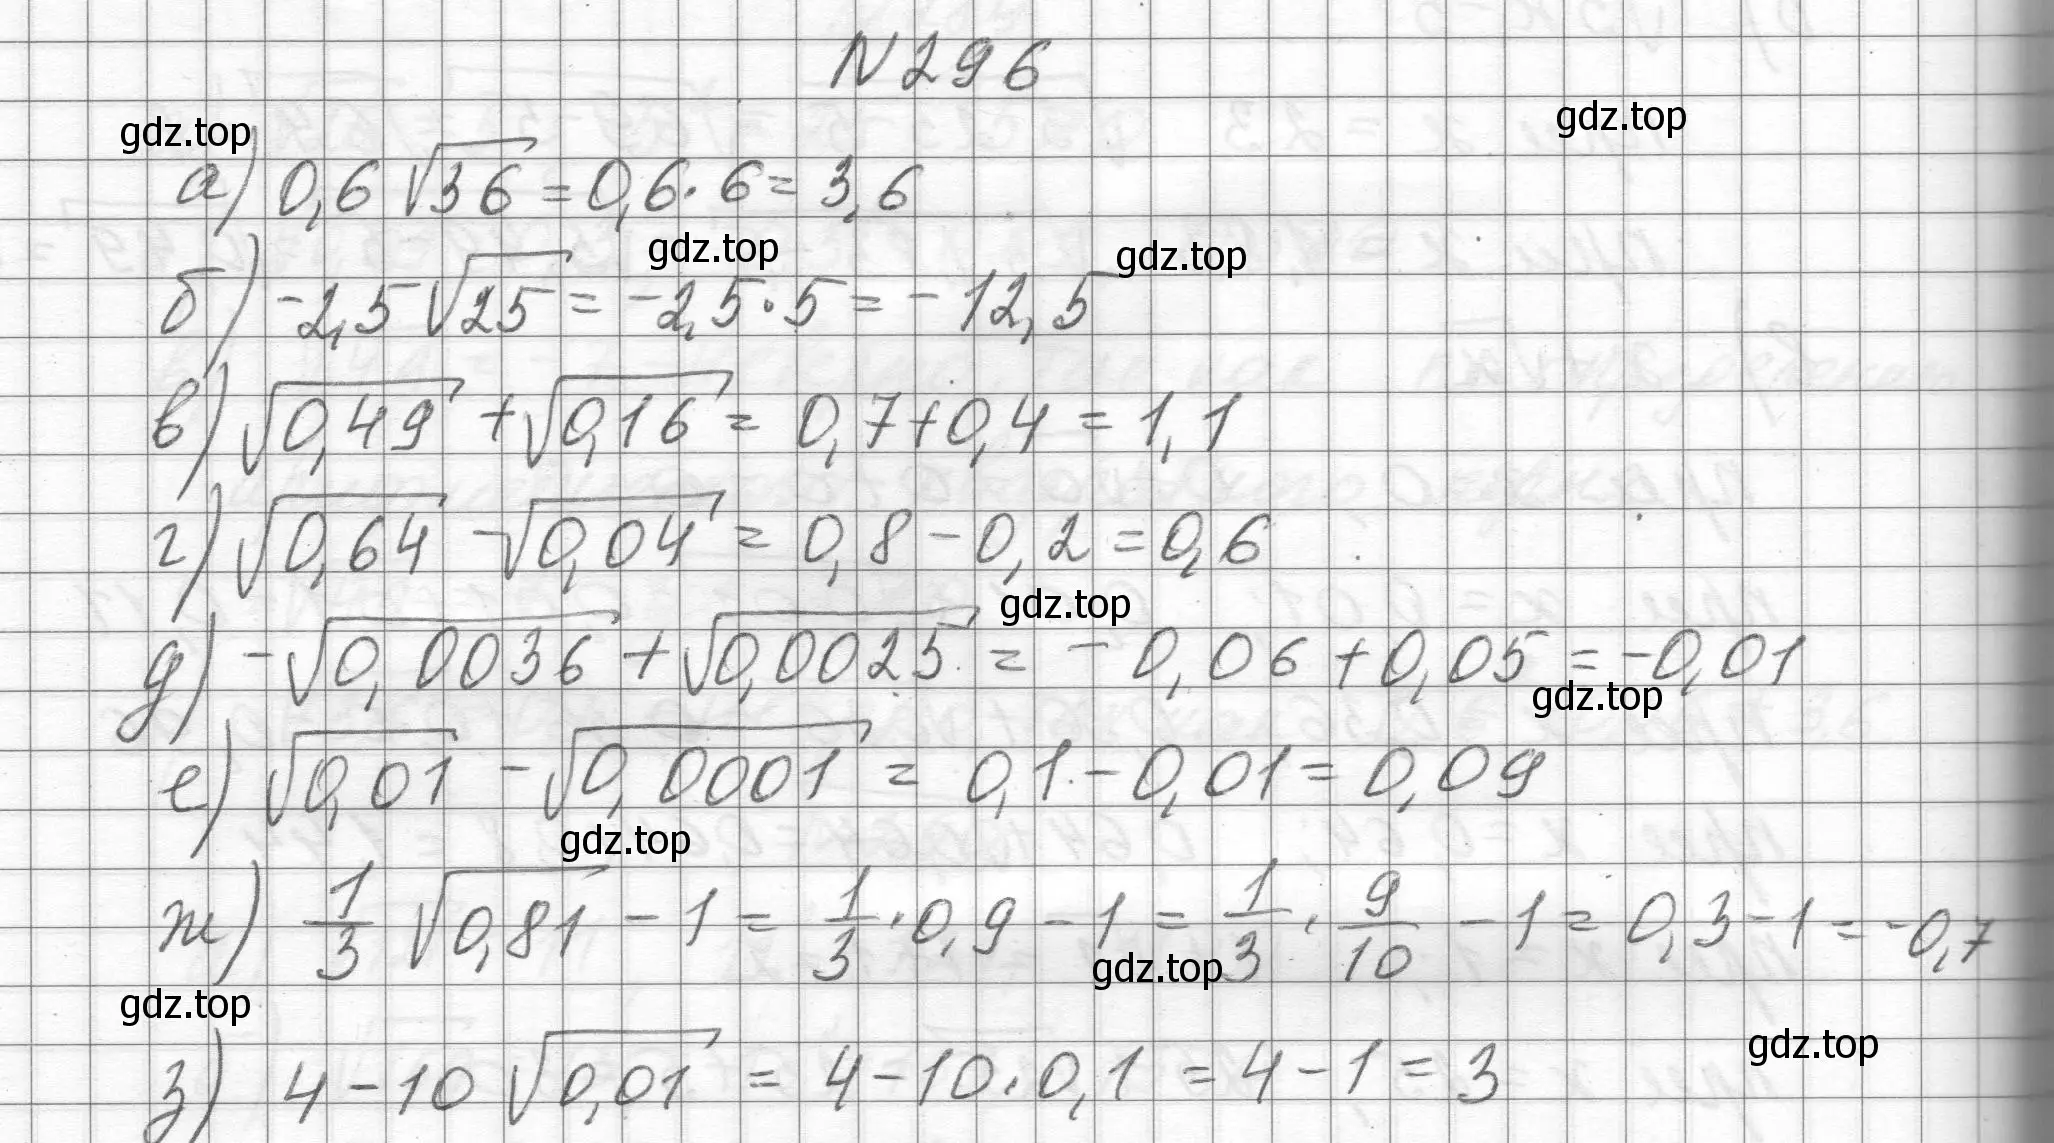 N 296
gdz.top
gdz.top
а) 0,6 √36 = 0,6 · 6 = 3,6
gdz.top
gdz.top
б) -2,5 √25 = -2,5 · 5 = -12,5
в) √0,49 + √0,16 = 0,7 + 0,4 = 1,1
г) √0,64 - √0,04 = 0,8 - 0,2 = 0,6
gdz.top
д) -√0,0036 + √0,0025 = -0,06 + 0,05 = -0,01
gdz.top
е) √0,01 - √0,0001 = 0,1 - 0,01 = 0,09
gdz.top
ж) 1/3 √0,81 - 1 = 1/3 · 0,9 - 1 = 1/3 · 9/10 - 1 = 0,3 - 1 = -0,7
gdz.top
gdz.top
gdz.top
з) 4 - 10 √0,01 = 4 - 10 · 0,1 = 4 - 1 = 3